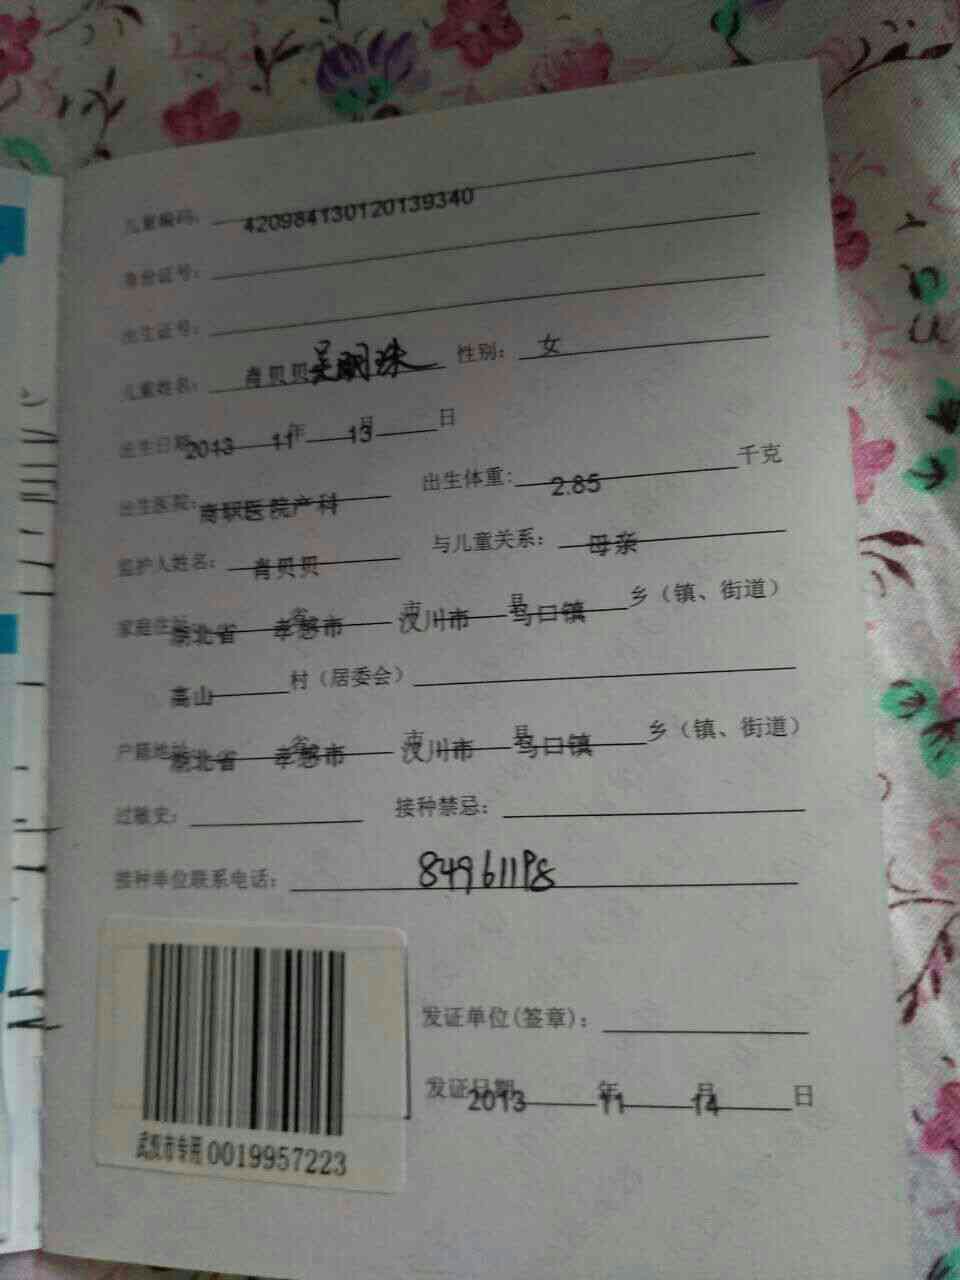 儿童编码： 420984130120139340
身份证号：
出生证号：
儿童姓名： 肖贝贝 吴明珠 性别： 女
出生日期 2013 年 11 月 13 日
出生医院： 商职医院产科 出生体重： 2.85 千克
监护人姓名： 肖贝贝 与儿童关系： 母亲
家庭住址 湖北省 省 孝感市 市 汉川市 县 马口镇 乡（镇、街道）
高山 村（居委会）
户籍地址 湖北省 省 孝感市 市 汉川市 县 马口镇 乡（镇、街道）
过敏史： 接种禁忌：
接种单位联系电话： 84961198
发证单位(签章)：
发证日期 2013 年 11 月 14 日
武汉市专用 0019957223